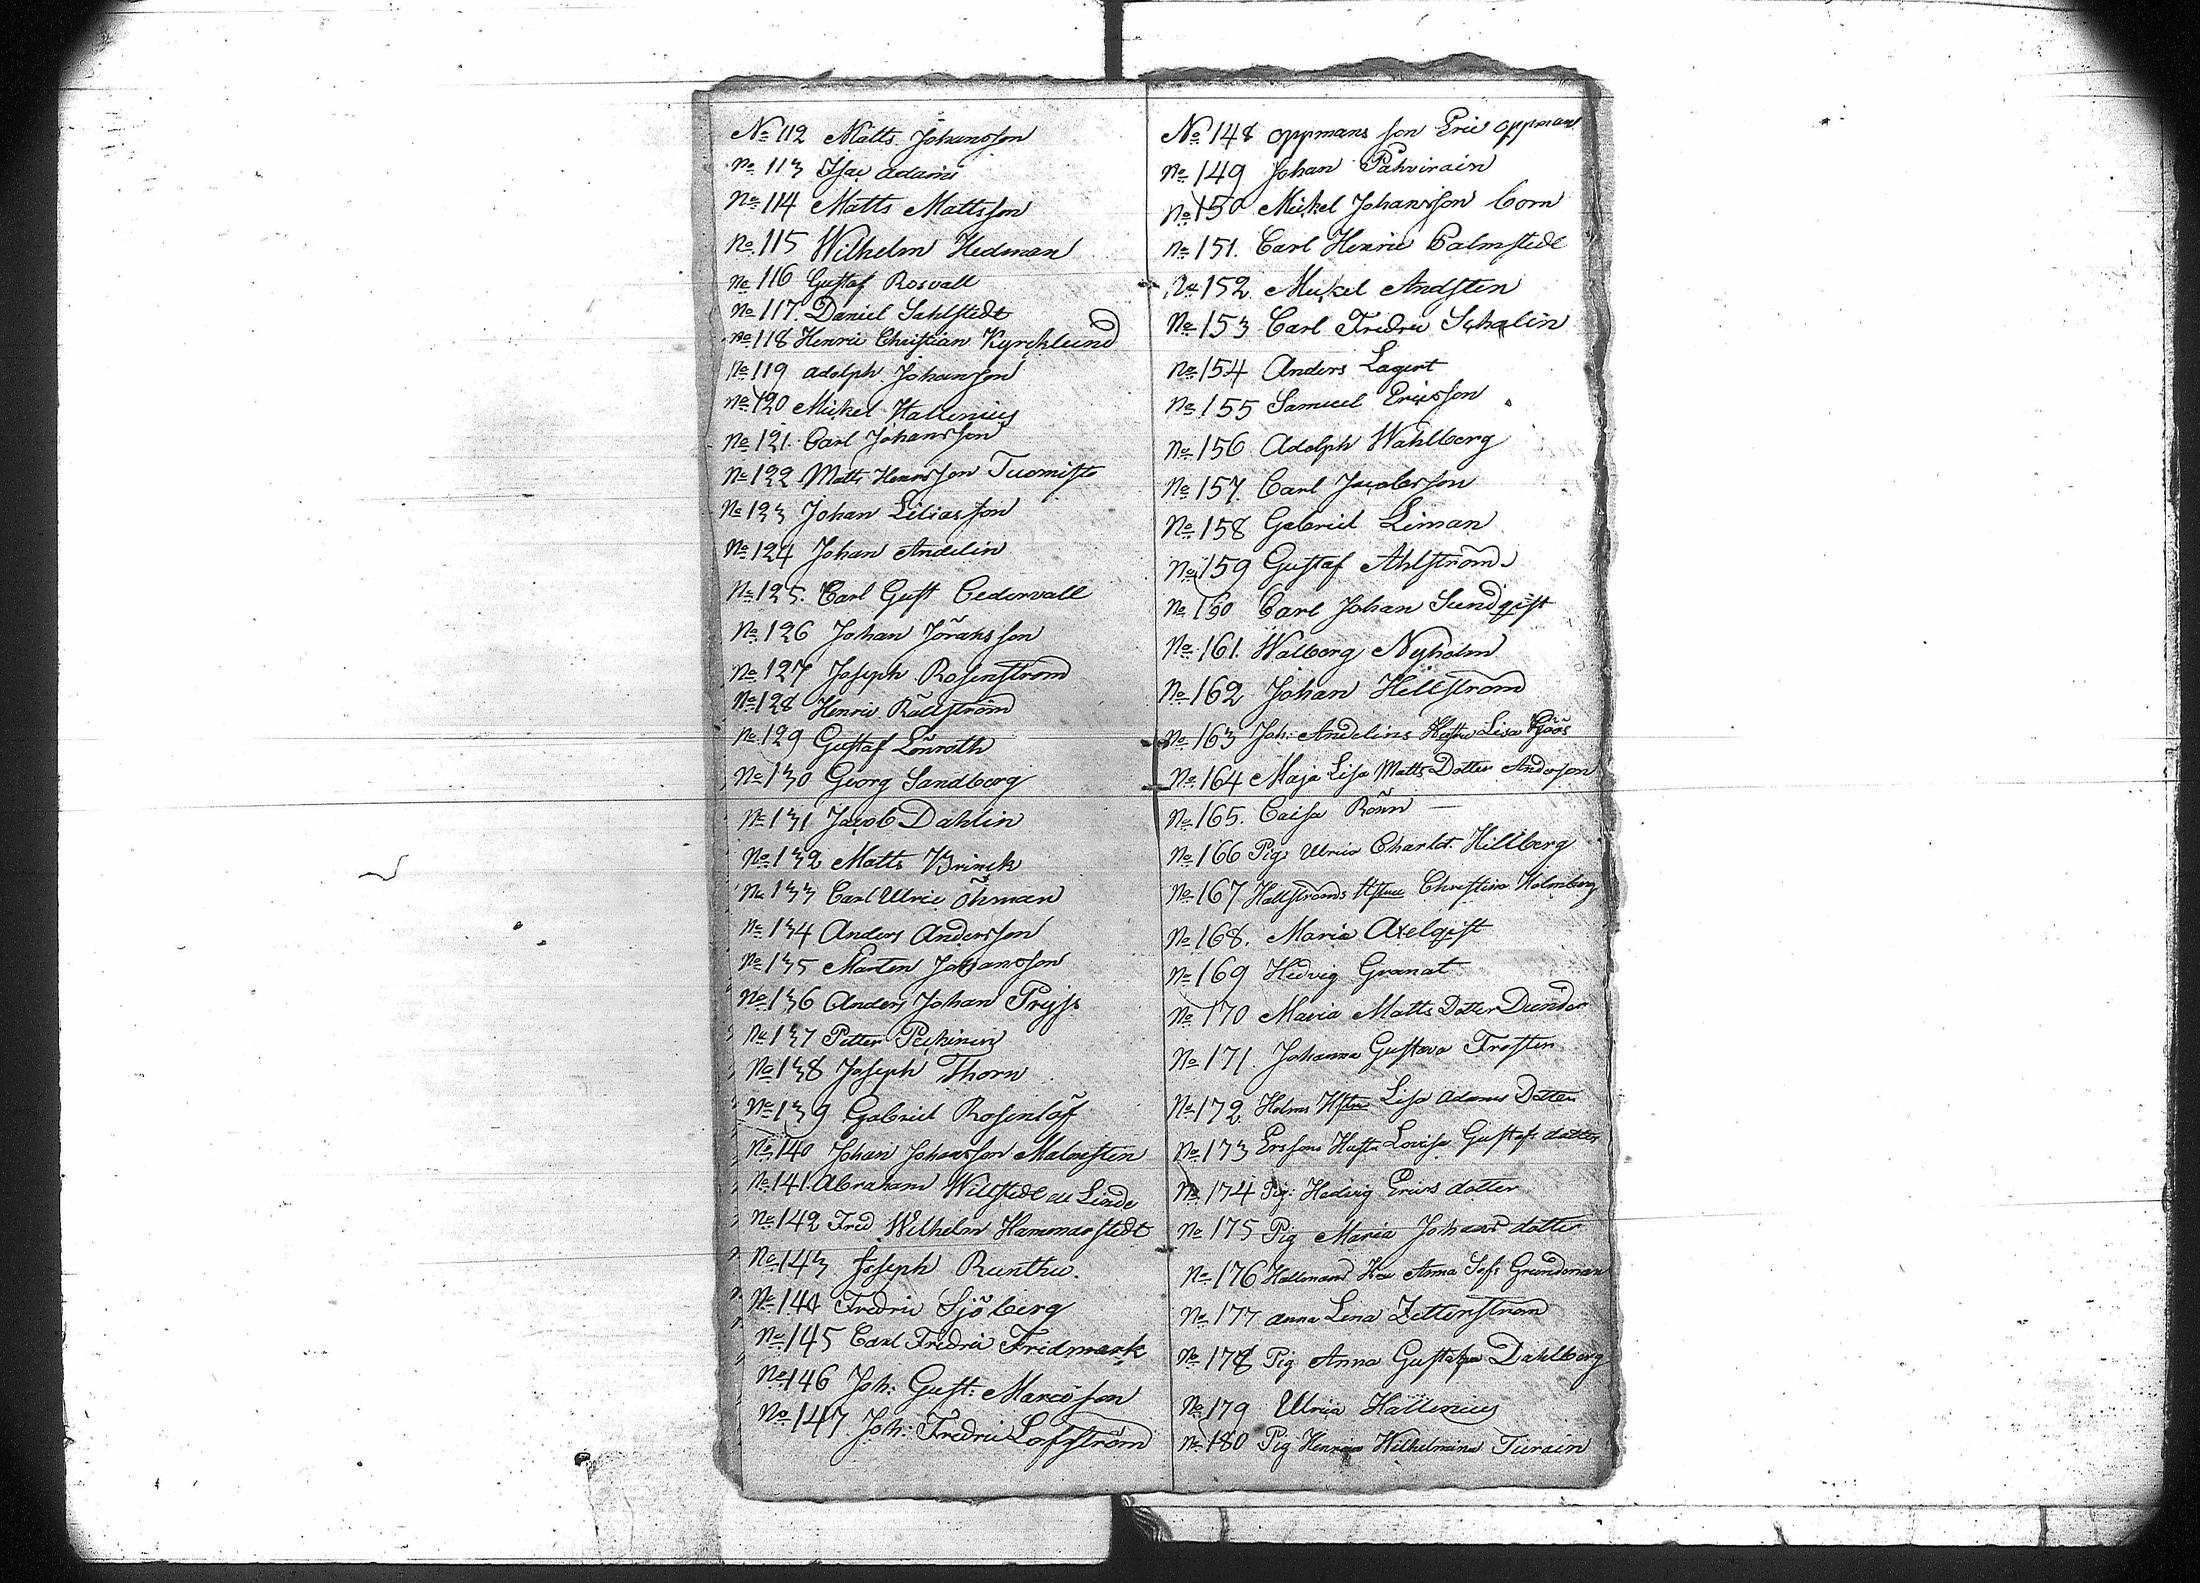 No 112 Matts Johansson
No 113 Isac Adam
No 114 Matts Mattsson
No 115 Wilhelm Hedman
No 116 Gustaf Rosvall
No 117. Daniel Sahlstedt
No 118 Henric Christian Kyrcklund
No 119 Adolph Johansson
No 120 Mickel Hallenius
No 121. Carl Johansson
No 122 Matts Henrsson Tuomisto
No 123 Johan Liliasson
No 124 Johan Andelin
No 125. Carl Gust Cedervall
No 126 Johan Jöransson
No 127 Joseph Rosenström
No 128 Henric Källström
No 129 Gustaf Lönroth
No 130 Georg Sandberg
No 131 Jacob Dahlin
No 132 Matts Brinck
No 133 Carl Ulric Öhman
No 134 Anders Andersson
No 135 Marten Johansson
No 136 Anders Johan Pryss
No 137 Petter Peckinen
No 138 Joseph Thorn
No 139 Gabriel Rosenlöf
No 140 Johan Johansson Malmsten
No 141. Abraham Willstedt Linde
No 142 Fred Wilhelm Hammarstedt
No 143 Joseph Runthu.
No 144 Fredric Sjöberg
No 145 Carl Fredric Fridmark
No 146 Joh: Gust: Marcusson
No 147. Joh: Fredric Lofström
No 148 Oppmans son Eric Oppman
No 149 Johan Pahvirain
No 150 Mickel Johansson Corn
No 151. Carl Henric Palmstedt
No 152 Mickel Andsten
No 153 Carl Fredric Schalin
No 154 Anders Lagert
No 155 Samuel Ericsson
No 156 Adolph Wahlberg
No 157. Carl Jacobsson
No 158 Gabriel Liman
No 159 Gustaf Ahlström
No 160 Carl Johan Sundqist
No 161. Walborg Nyholm
No 162 Johan Hellström
No 163 Joh: Andelins Hustru Lisa
No 164 Maja Lisa Matts Dotter Andersson
No 165. Caisa Rönn
No 166 Pig: Ulrica Charlot. Hillberg
No 167 Hallströms Hstru Christina Holmberg
No 168. Maria Axelqist
No 169 Hedvig Granat
No 170 Maria Matts Dotter Dunder
No 171. Johanna Gustava Frosten
No 172 Holms Hstru Lisa Adams Dotter
No 173 Erssons Hustr Lovisa Gustafs dotter
No 174 Pig: Hedvig Erics dotter
No 175 Pig Maria Johans dotter
No 176 Hallmans Anna Sof: Grundman
No 177 Anna Lena Zetterström
No 178 Pig Anna Gustafva Dahlberg
No 179 Ulrica Hallenius
No 180 Pig Henrica Wilhelmina Turain